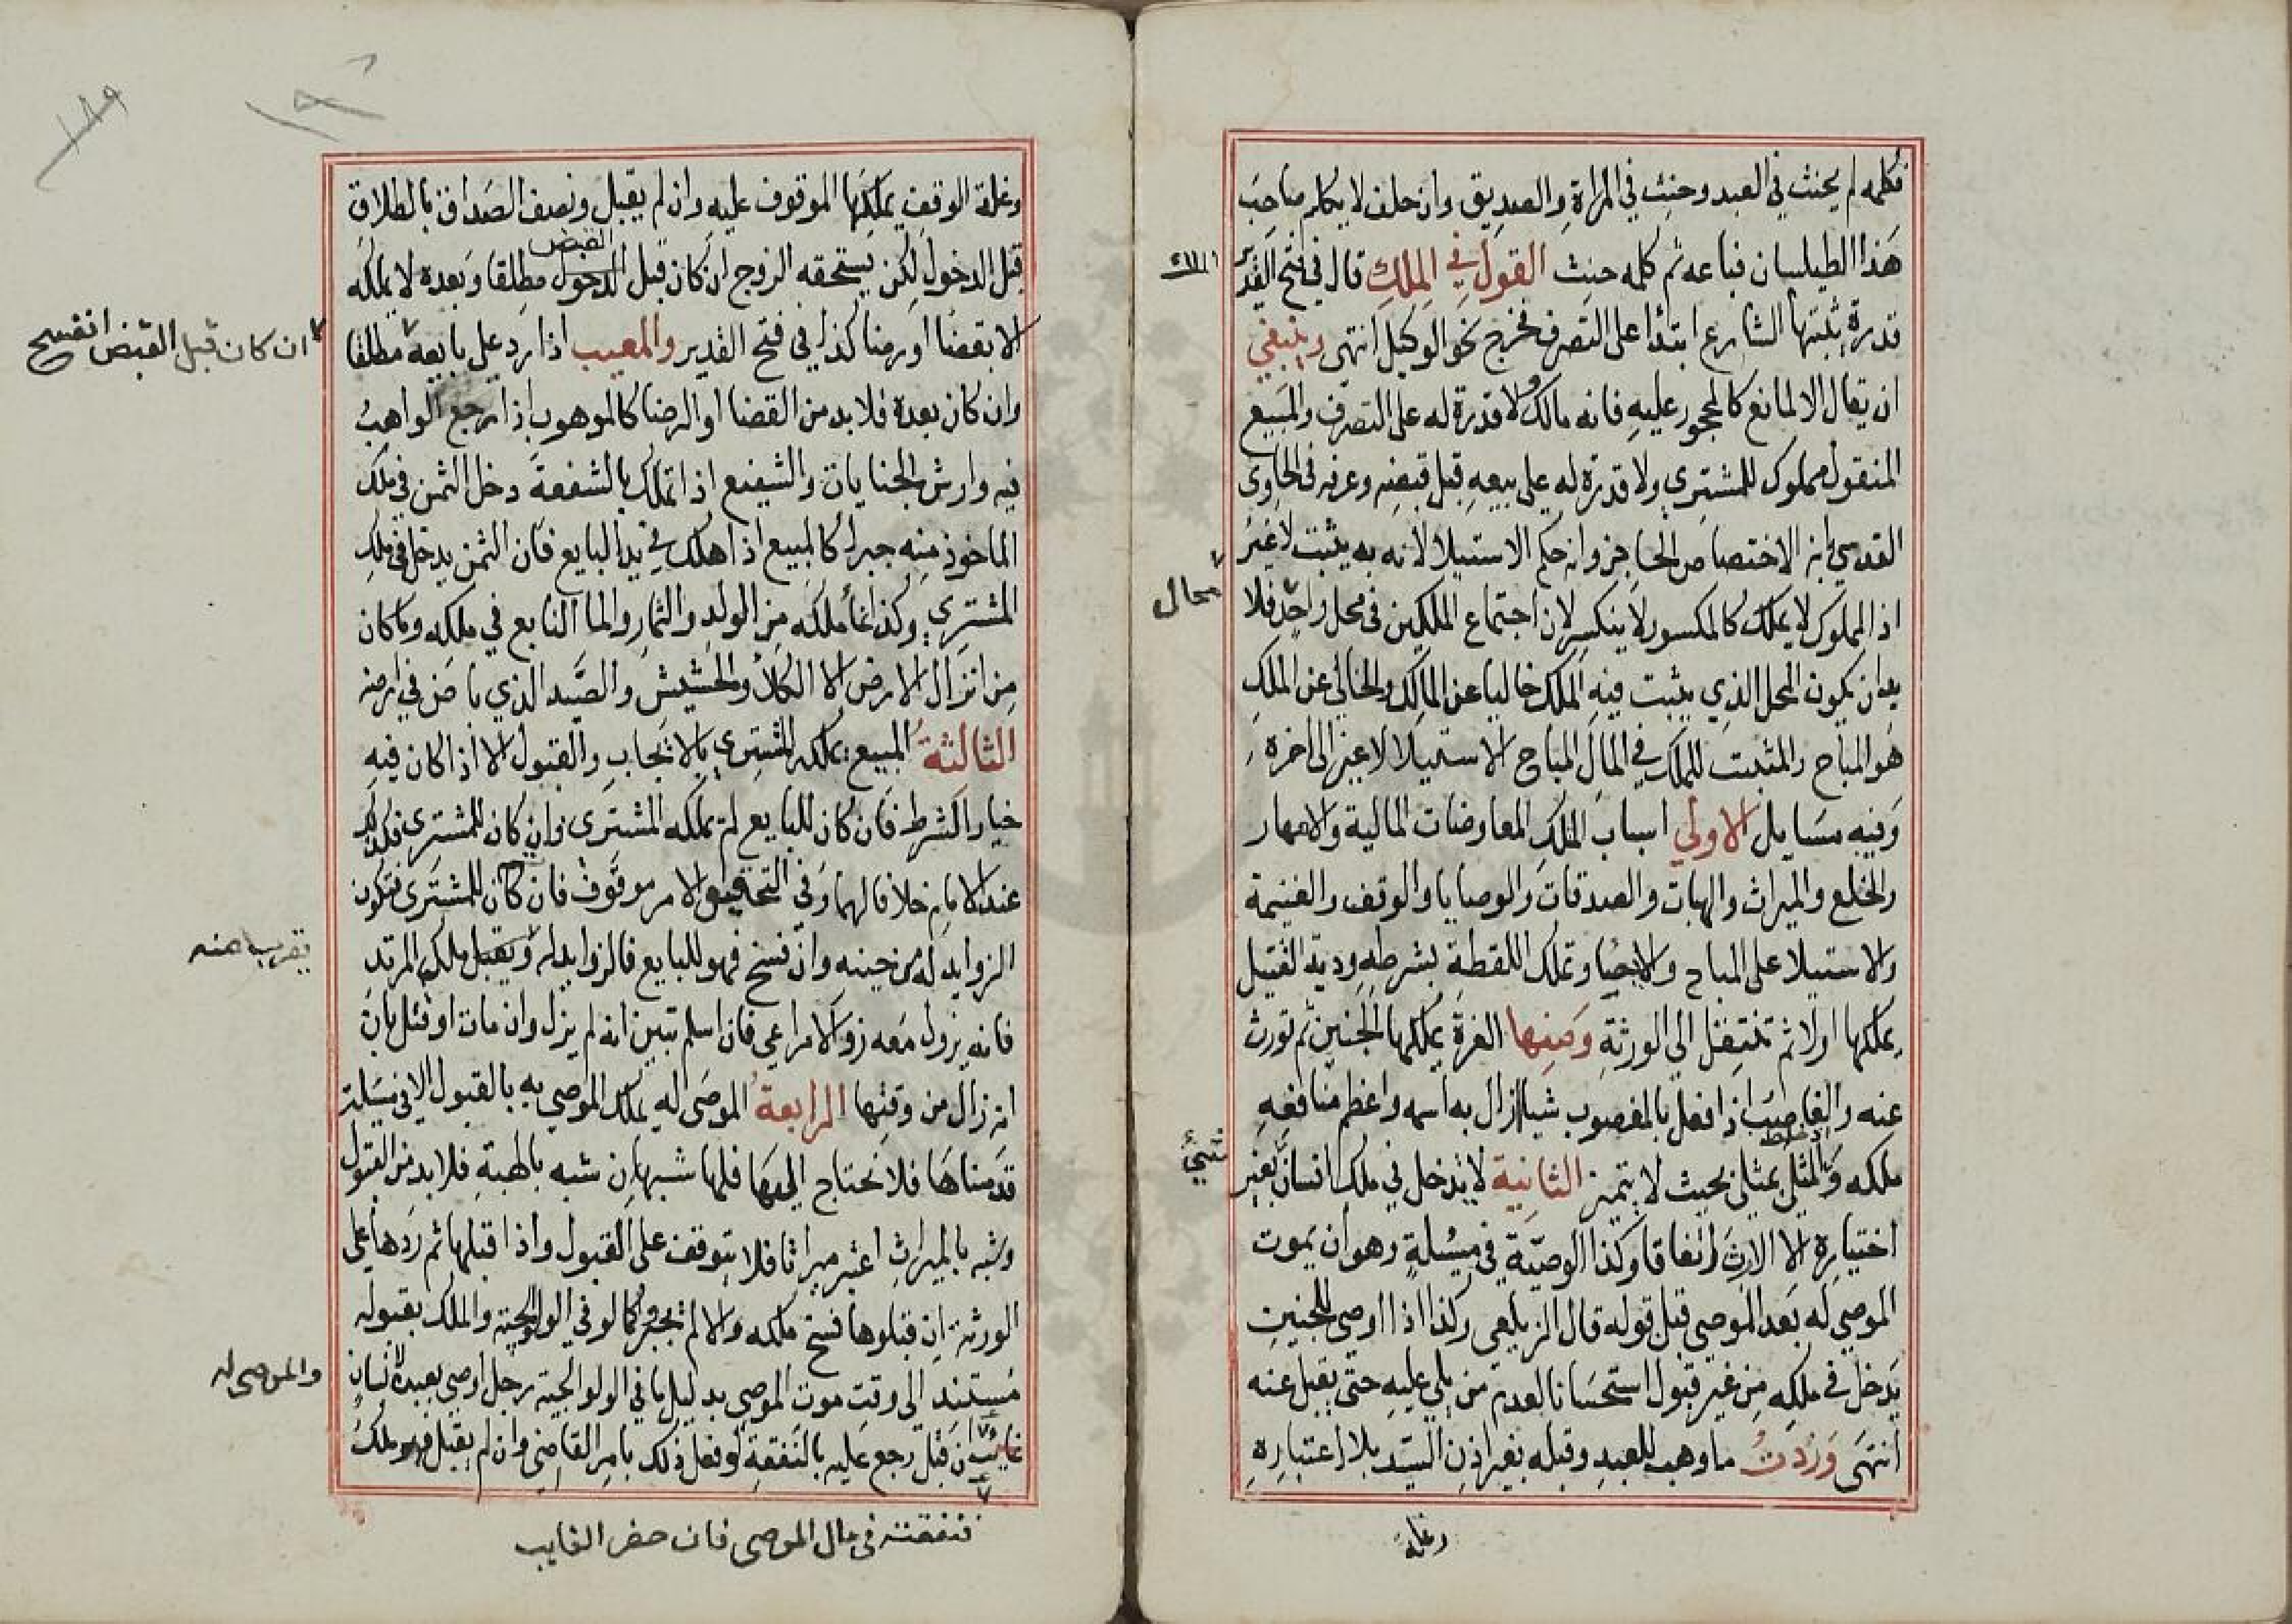 فكلمه لم يحنث في العبد وحنث في المراة والصديق وان حلف لا يكلم صاحب
هذا الطيلسان فباعه ثم كلمه حنث القول في الملك قال في فتح القدير
الملك
قدرة يثبتها الشارع ابتدا على التصرف فخرج نحو الوكيل انتهى وينبغي
ان يقال الا لمانع كالمحجور عليه فانه مالك ولا قدرة له على التصرف والمبيع
المنقول مملوك للمشتري ولا قدرة له على بيعه قبل قبضه وعرفه في الحاوي
القدسي بانه الاختصاص الحاجز وانه حكم الاستيلا لانه به يثبت لا غير
اذ المملوك لا يملك كالمكسور لا ينكسر لان اجتماع الملكين في محل واحد فلا
محال
بد ان يكون المحل الذي يثبت فيه الملك خاليا عن المالك والخالي عن الملك
هو المباح والمثبت للملك في المال المباح الاستيلا لا غير الى اخره
وفيه مسايل الاولي اسباب الملك المعاوضات المالية والامهار
والخلع والميراث والهبات والصدقات والوصايا والوقف والغنيمة
والاستيلا على المباح والاحيا وتملك اللقطة بشرطه ودية القتيل
يملكها اولا ثم تنتقل الي الورثة ومنها الغرة يملكها الجنين ثم تورث
عنه والغاصب اذا فعل بالمغصوب شيا ازال به اسمه واعظم منافعه
ملكه والمثلي بمثلي بحيث لا يتميز الثانية لا يدخل في ملك انسان بغير
اذا خلط
شيئ
اختياره الا الارث اتفاقا وكذا الوصية في مسئلة وهو ان يموت
الموصي له بعد الموصي قبل قوله قال الزيلعي وكذا اذا اوصي للجنين
يدخل في ملكه من غير قبول استحسانا لعدم من يلي عليه حتى يقبل عنه
انتهى وزدت ما وهب للعبد وقبله بغير اذن السيد بلا اعتباره
وغلة
وغلة الوقف يملكها الموقوف عليه وان لم يقبل ونصف الصداق بالطلاق
قبل الدخول لكن يستحقه الزوج ان كان قبل الدخول مطلقا وبعده لا يملكه
القبض
الا بقضا او رضا كذا في فتح القدير والمعيب اذا رد على بايعه مطلقا
ان كان قبل القبض انفسخ
وان كان بعده فلا بد من القضا او الرضا كالموهوب اذا رجع الواهب
فيه وارش الجنايات والشفيع اذا تملك بالشفعة دخل الثمن في ملك
الماخوذ منه جبرا كالمبيع اذا هلك في يد البايع فان الثمن يدخل في ملك
المشتري وكذا نما ملكه من الولد والثمار والما النابع في ملكه وما كان
من انزال الارض الا الكلا والحشيش والصيد الذي باض في ارضه
الثالثة المبيع يملكه المشتري بالايجاب والقبول الا اذا كان فيه
خيار الشرط فان كان للبايع لم يملكه المشتري وان كان للمشتري فكذلك
عند الامام خلافا لهما وفي التحقيق الامر موقوف فان كان للمشتري فتكون
الزوايد له من حينه وان فسخ فهو للبايع فالزوايد له ويقبل ملك المرتد
يقرب منه
فانه يزول معه زوالا مراعى فان اسلم تبين انه لم يزل وان مات او قتل بان
انه زال من وقتها الرابعة الموصى له يملك الموصي به بالقبول الا في مسئلة
قدمناها فلا نحتاج اليها فلها شبهان شبه بالهبة فلا بد من القبول
وشبه بالميراث اعتبر ميراثا فلا يتوقف على القبول واذا قبلها ثم ردها على
الورثة ان قبلوها فسخ ملكه والا لم تجبر كما لو في الولوالجية والملك بقبوله
مستند الى وقت موت الموصي بدليل ما في الولوالجية رجل اوصي بعبده لانسان
والموصى له
غايب ان قبل رجع عليه بالنفقة لو فعل ذلك بامر القاضي وان لم يقبل فهو ملك
فنفقته في مال الموصي فان حضر الغايب